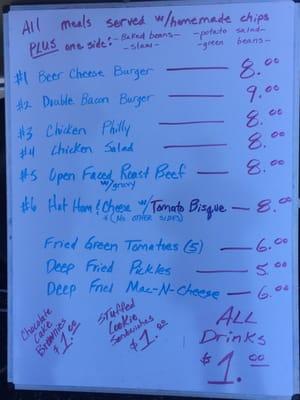 All meals served w/homemade chips
PLUS one side: -Baked beans- -potato salad-
-slaw- -green beans-
#1 Beer Cheese Burger — 8.00
#2 Double Bacon Burger — 9.00
#3 Chicken Philly — 8.00
#4 Chicken Salad — 8.00
#5 Open Faced Roast Beef — 8.00
w/gravy
#6 Hot Ham & Cheese w/Tomato Bisque — 8.00
*(No other sides)
Fried Green Tomatoes (5) — 6.00
Deep Fried Pickles — 5.00
Deep Fried Mac-N-Cheese — 6.00
Chocolate
Cake
Brownies
$1.00
Stuffed
Cookie
Sandwiches
$1.00
ALL
Drinks
$1.00